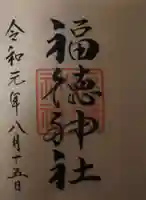 福徳神社
令和元年八月十五日